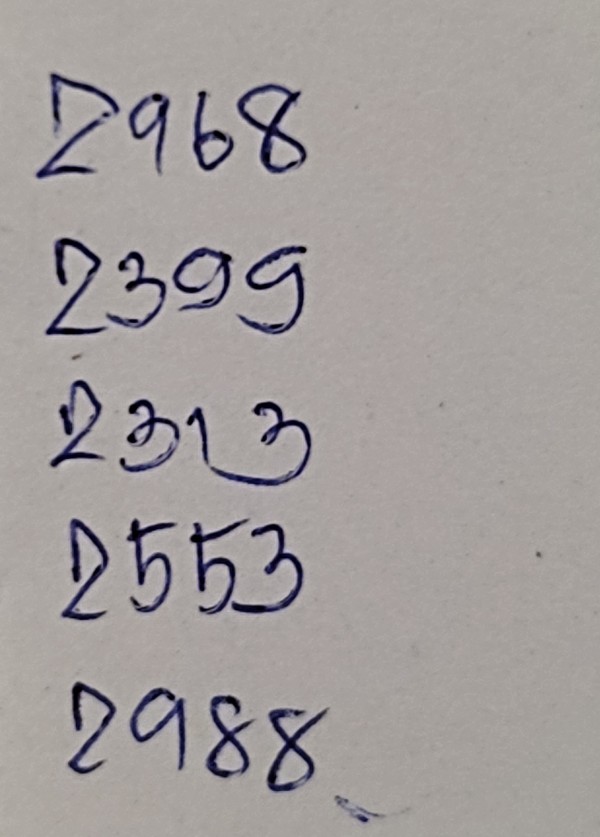 2968
2399
2313
2553
2988